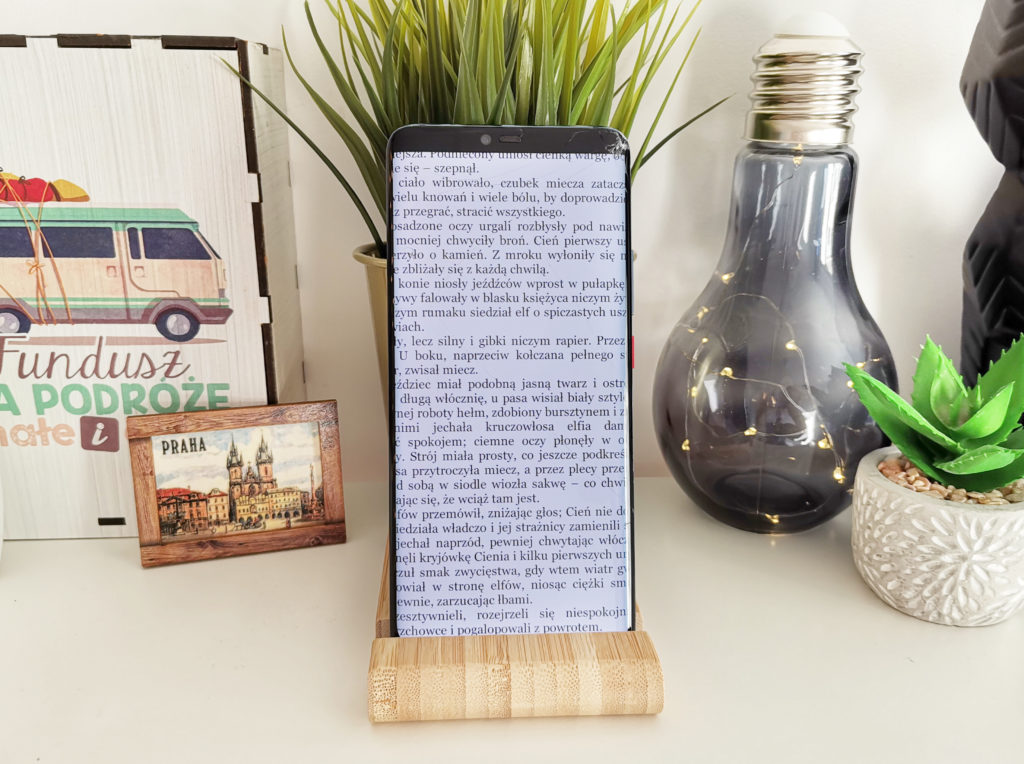 Fundusz
A PODRÓŻE
nate i
PRAHA
ejsza. Podniecony uniósł cienką wargę, o
ie się – szepnął.
ciało wibrowało, czubek miecza zatacz
wielu knowań i wiele bólu, by doprowadzi
z przegrać, stracić wszystkiego.
osadzone oczy urgali rozbłysły pod nawi
mocniej chwyciły broń. Cień pierwszy u
erzyło o kamień. Z mroku wyłoniły się n
e zbliżały się z każdą chwilą.
konie niosły jeźdźców wprost w pułapkę
ywy falowały w blasku księżyca niczym ży
zym rumaku siedział elf o spiczastych usz
wiach.
ły, lecz silny i gibki niczym rapier. Przez
U boku, naprzeciw kołczana pełnego s
r, zwisał miecz.
eździec miał podobną jasną twarz i ostr
długą włócznię, u pasa wisiał biały sztyl
nej roboty hełm, zdobiony bursztynem i z
nimi jechała kruczowłosa elfia dam
ć spokojem; ciemne oczy płonęły w o
y. Strój miała prosty, co jeszcze podkreś
sa przytroczyła miecz, a przez plecy prze
d sobą w siodle wiozła sakwę – co chwi
ając się, że wciąż tam jest.
fów przemówił, zniżając głos; Cień nie do
iedziała władczo i jej strażnicy zamienili
jechał naprzód, pewniej chwytając włócz
nęli kryjówkę Cienia i kilku pierwszych ur
czuł smak zwycięstwa, gdy wtem wiatr g
owiał w stronę elfów, niosąc ciężki sm
ewnie, zarzucając łbami.
zesztywnieli, rozejrzeli się niespokojn
rzchowce i pogalopowali z powrotem.